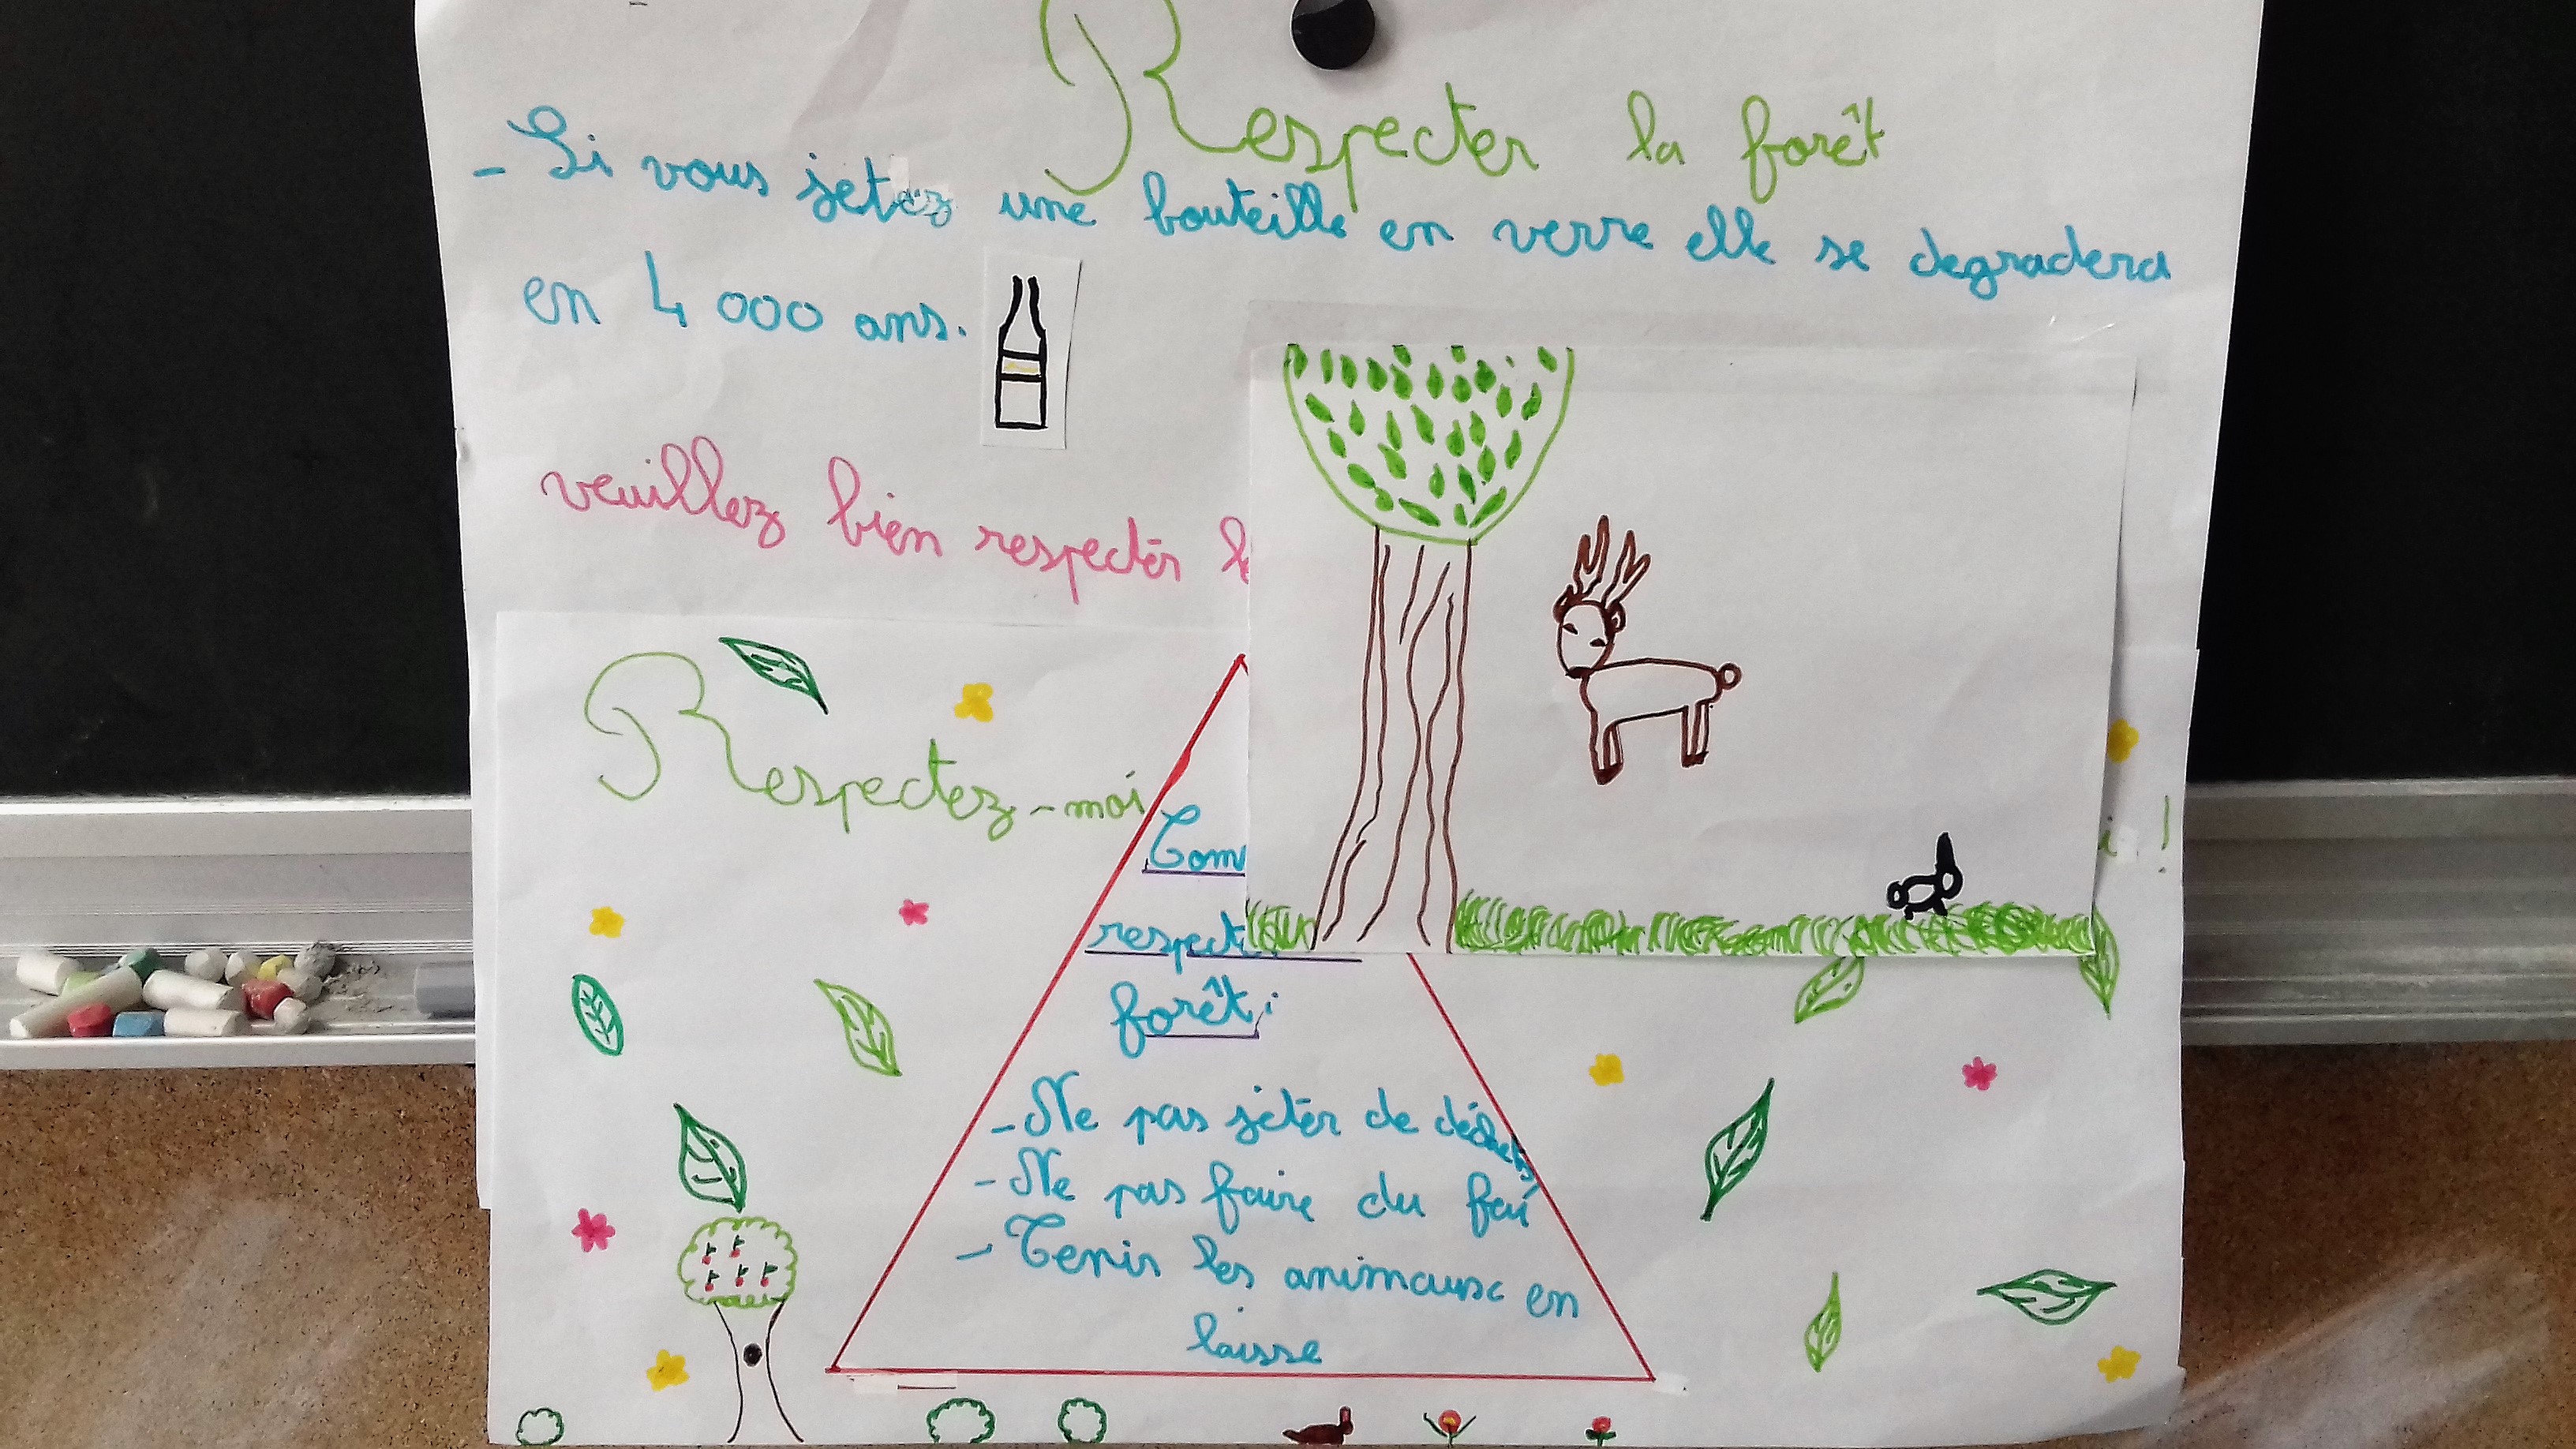 Respecter la forêt
- Si vous jetez une bouteille en verre elle se degradera
en 4 000 ans.
veuillez bien respecter
Respectez-moi
!
forêt :
- Ne pas jeter de déchets
- Ne pas faire du feu
- Tenir les animaux en
laisse